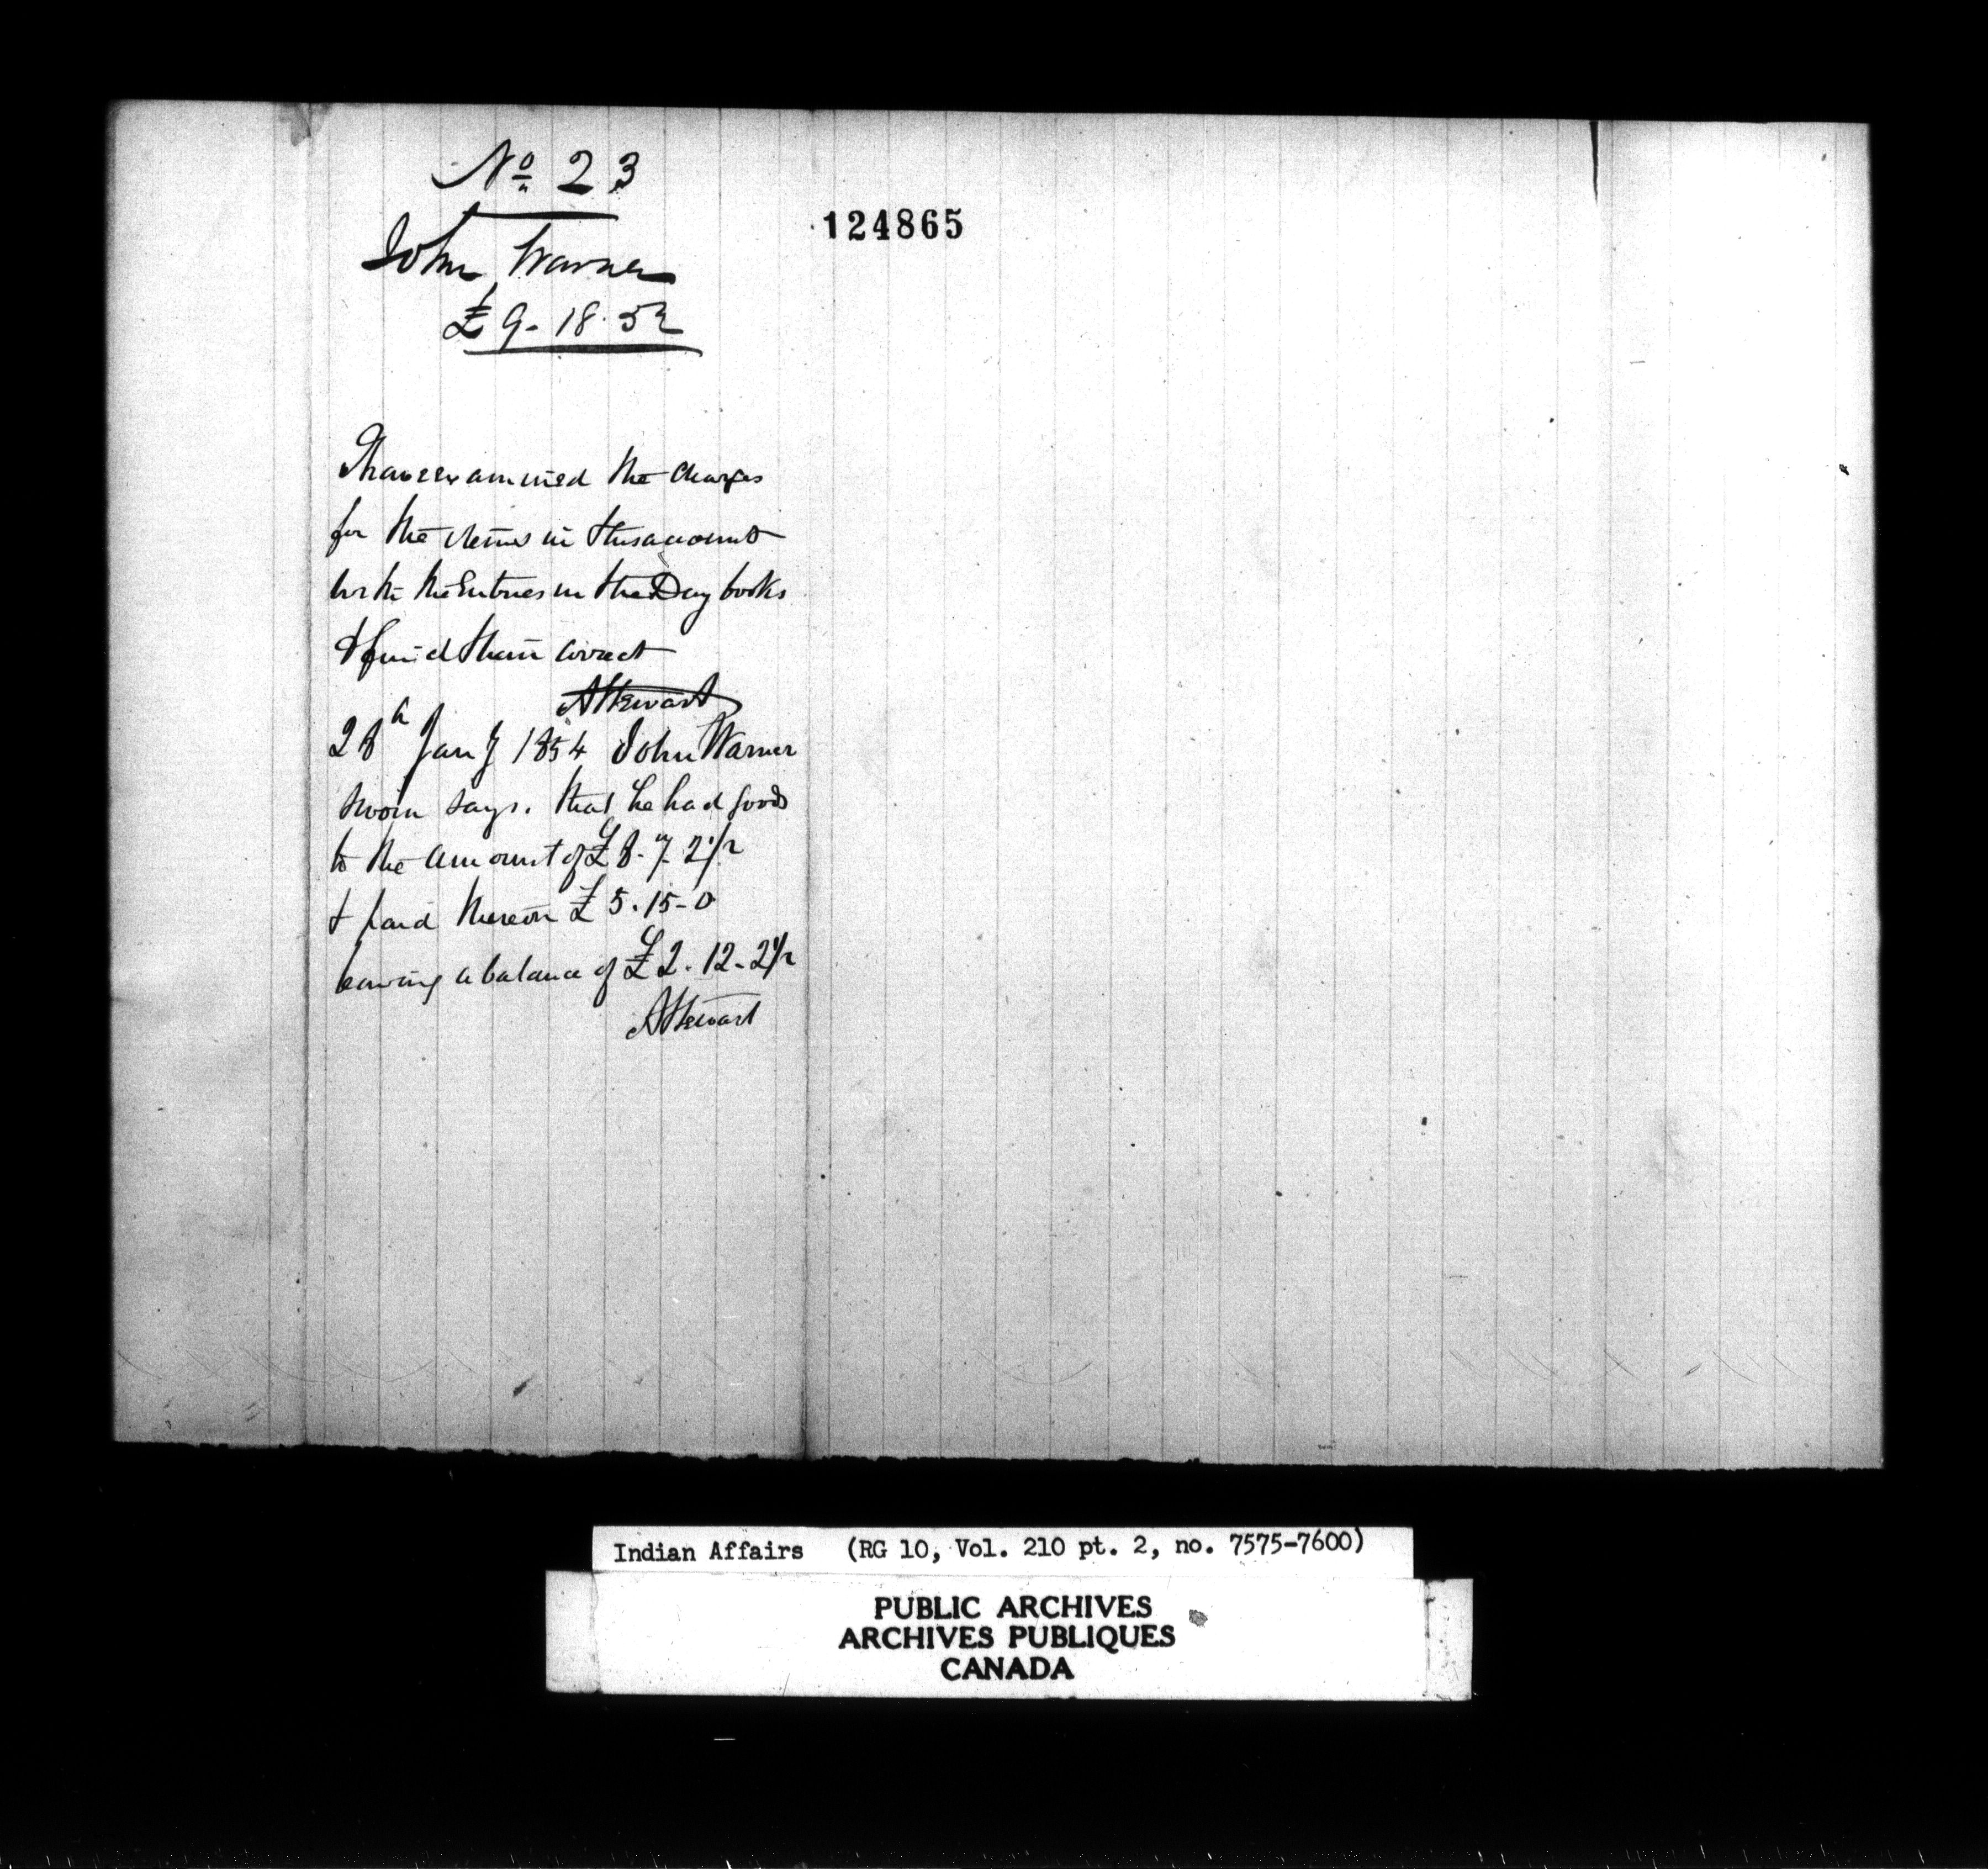 No 23
124865
John Warner
£9-18.5½
I have examined the charges
for the items in this account
with the Entries in the Day books
& find them correct
AStewart
28h Jany 1854 John Warner
sworn says. that he had goods
to the amount of £8-7-2½
& paid thereon £5.15-0
leaving a balance of £2.12-2½
AStewart
Indian Affairs (RG 10, Vol. 210 pt. 2, no. 7575-7600)
PUBLIC ARCHIVES
ARCHIVES PUBLIQUES
CANADA